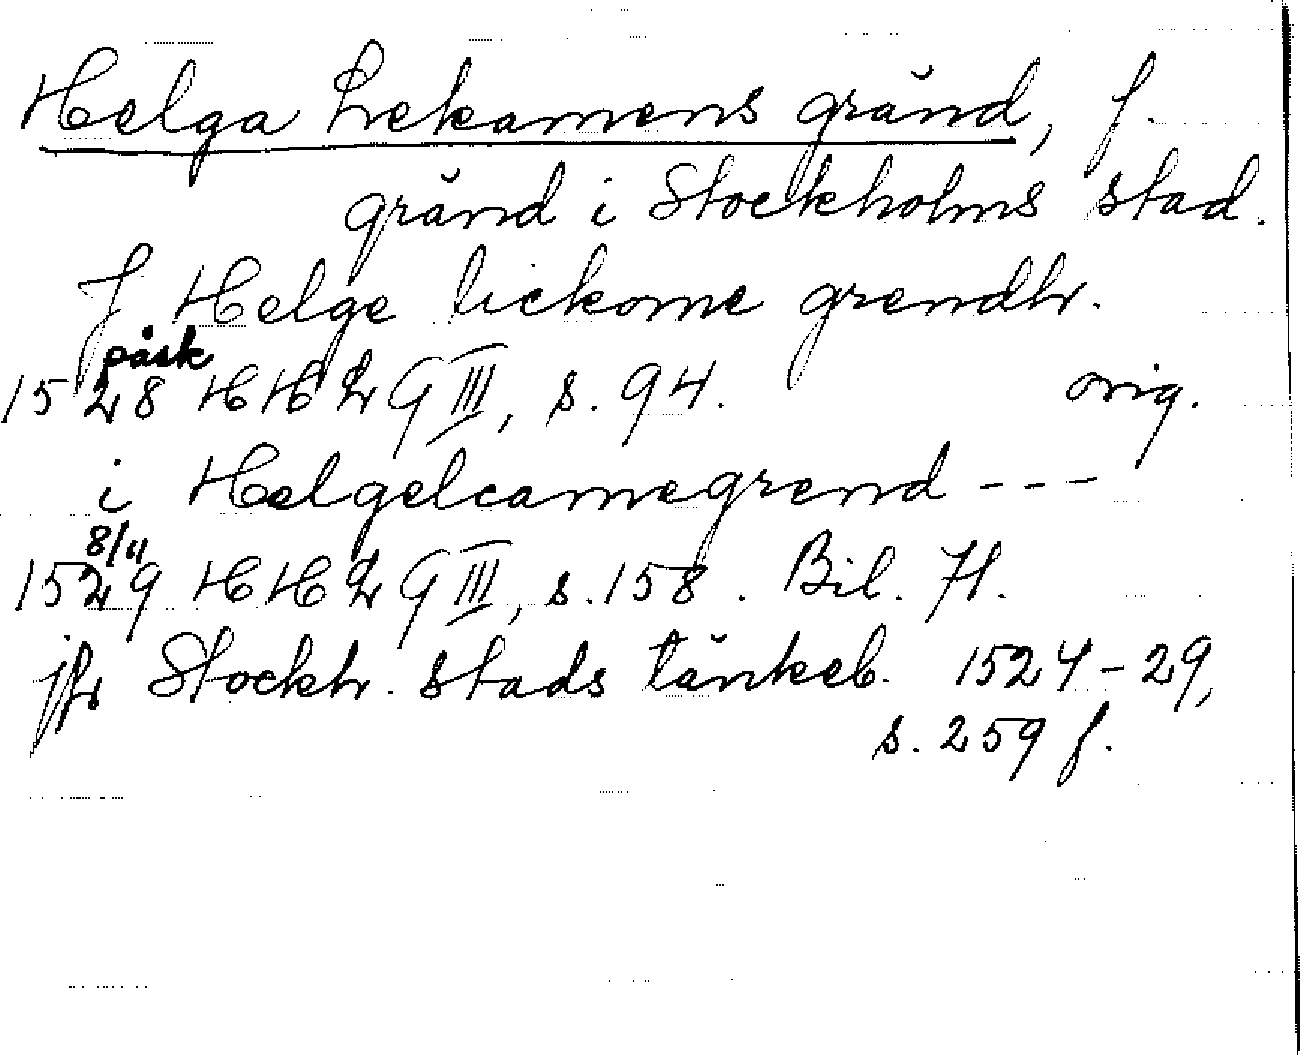 Helga Lekamens gränd, f.
gränd i Stockholms stad.
J Helge lickome grendh.
påsk
1528 HH 2 G III, s. 94. orig.
i Helgelcamegrend - - -
8/11
1529 HH 2 G III, s. 158. Bil. H.
jfr Stockh. stads tänkeb. 1524-29,
s. 259 f.